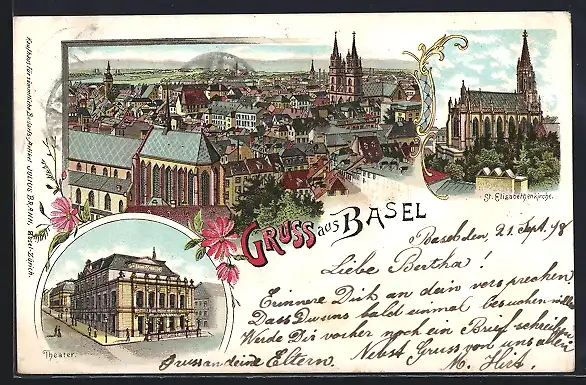 Kaufhaus für sämmtliche Bedarfs-Artikel JULIUS BRANN, Basel-Zürich.
St. Elisabethenkirche.
GRUSS aus BASEL
Theater.
Basel den, 21. Sept. 98
Liebe Bertha!
Erinnere Dich an dein versprechen
Dass Du uns bald einmal besuchen willst
Werde Dir vorher noch ein Brief schreiben
Gruss an deine Eltern. Nebst Gruss von uns allen
M. Hirt.